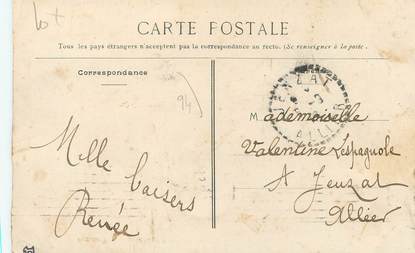 Lot
CARTE POSTALE
Tous les pays étrangers n'acceptent pas la correspondance au recto. (Se renseigner à la poste.
Correspondance
94
JENZAT
ALLIER
Mademoiselle
Valentine Lespagnole
A Jenzat
Allier
Mille baisers
Renée